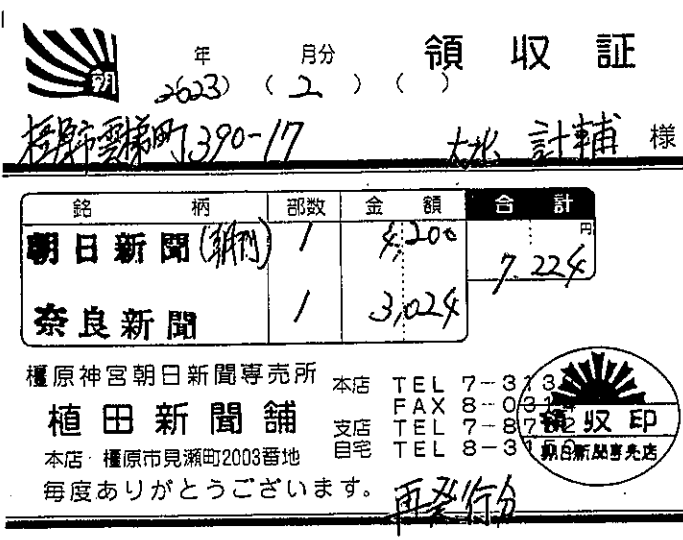 朝
年 月分 領収証
2023) ( 2 ) ( )
橿原市雲梯町390-17 計輔 様
銘柄 部数 金額 合計
朝日新聞(朝刊) 1 4,200 円
7,224
奈良新聞 1 3,024
橿原神宮朝日新聞専売所
植田新聞舗
本店・橿原市見瀬町2003番地
毎度ありがとうございます。
本店 TEL 7-313
FAX 8-03
支店 TEL 7-87 2
自宅 TEL 8-3
領収印
朝日新聞専売店
再発行分